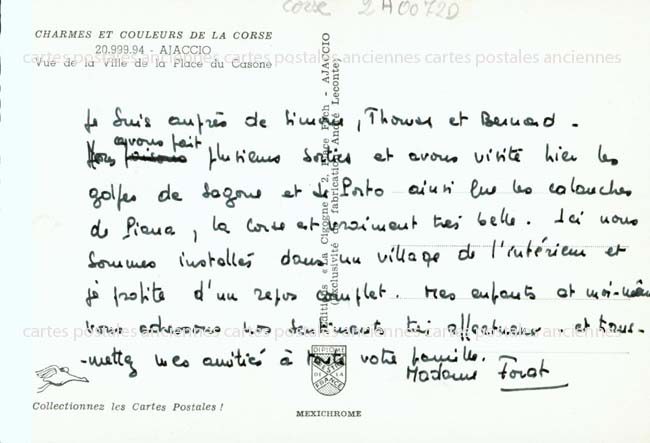 Corse 2A0072D
CHARMES ET COULEURS DE LA CORSE
20.999.94 - AJACCIO
Vue de la Ville de la Place du Casone
cartes postales anciennes cartes postales anciennes cartes postales anciennes
Je suis auprès de Simone, Thomas et Bernard.
Nous avons fait plusieurs sorties et avons visité hier les
golfes de Sagone et de Porto ainsi que les calanches
de Piana, la Corse est vraiment très belle. Ici nous
sommes installés dans un village de l'intérieur et
je profite d'un repos complet. Mes enfants et moi-même
vous adressons nos sentiments très affectueux et trans-
-mettez mes amitiés à toute votre famille.
Madame Forat
cartes postales anciennes cartes postales anciennes cartes postales anciennes
Editions «La Cigogne», 2, Place Foch - AJACCIO
(Exclusivité de fabrication André Leconte)
DIPLOME
DE LA
FRANCE
Collectionnez les Cartes Postales !
MEXICHROME